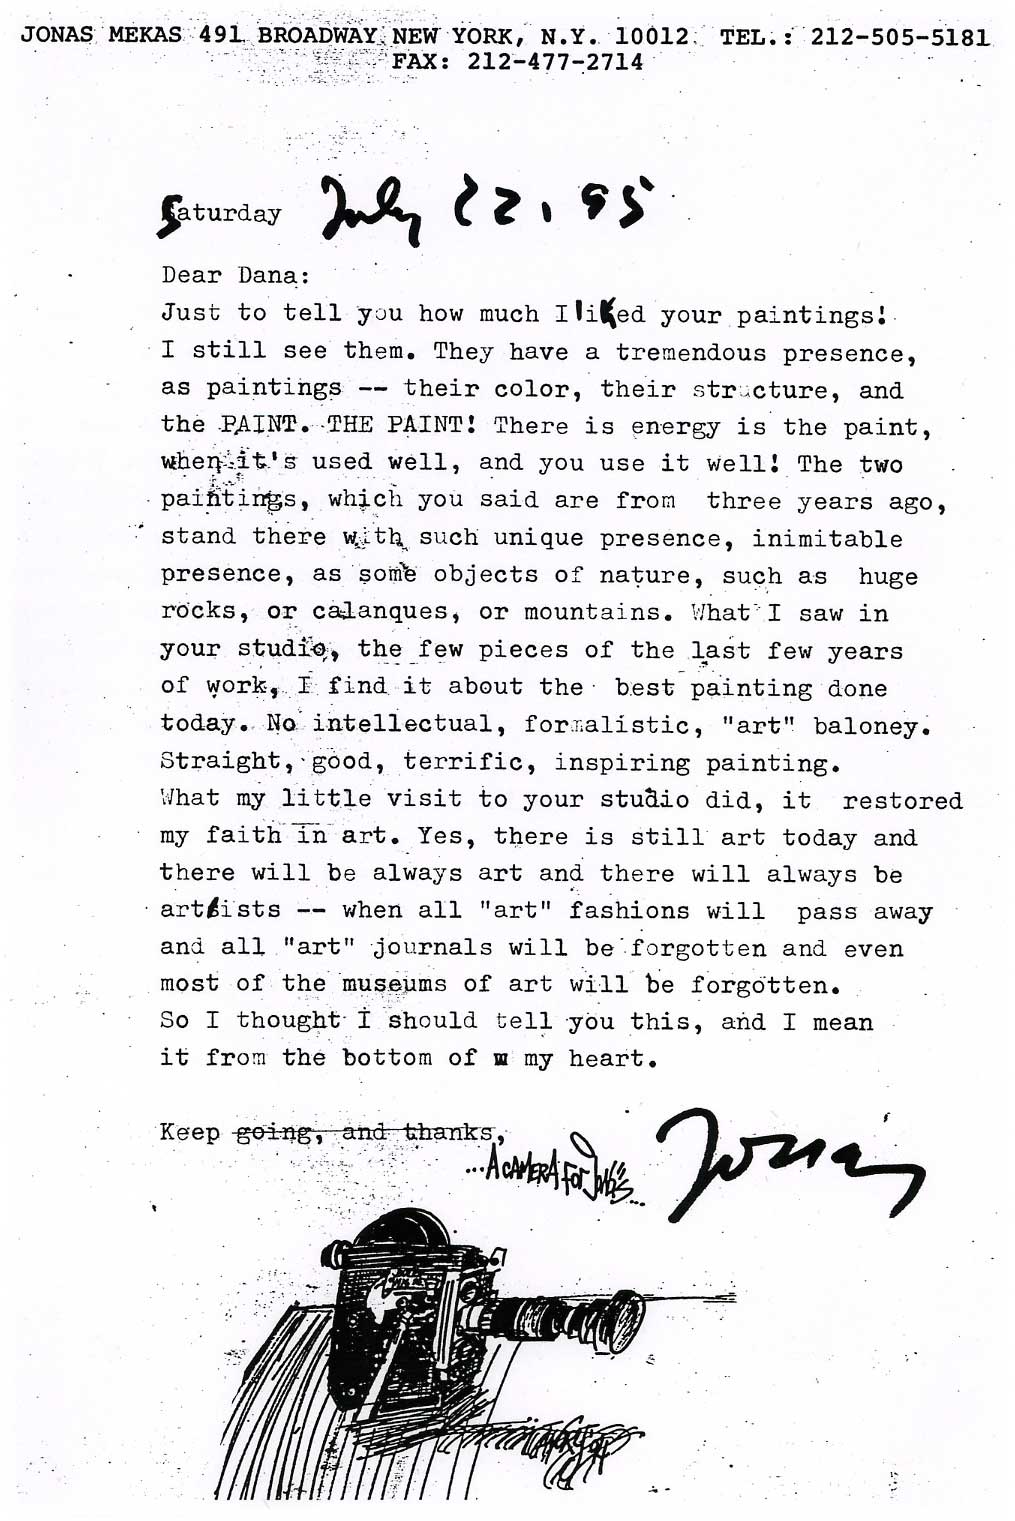 JONAS MEKAS 491 BROADWAY NEW YORK, N.Y. 10012. TEL.: 212-505-5181
FAX: 212-477-2714
Saturday July 22, 95
Dear Dana:
Just to tell you how much I liked your paintings!
I still see them. They have a tremendous presence,
as paintings -- their color, their structure, and
the PAINT. THE PAINT! There is energy is the paint,
when it's used well, and you use it well! The two
paintings, which you said are from three years ago,
stand there with such unique presence, inimitable
presence, as some objects of nature, such as huge
rocks, or calanques, or mountains. What I saw in
your studio, the few pieces of the last few years
of work, I find it about the best painting done
today. No intellectual, formalistic, "art" baloney.
Straight, good, terrific, inspiring painting.
What my little visit to your studio did, it restored
my faith in art. Yes, there is still art today and
there will be always art and there will always be
artists -- when all "art" fashions will pass away
and all "art" journals will be forgotten and even
most of the museums of art will be forgotten.
So I thought I should tell you this, and I mean
it from the bottom of m my heart.
Keep going, and thanks,
Jonas
...A CAMERA FOR JONAS...